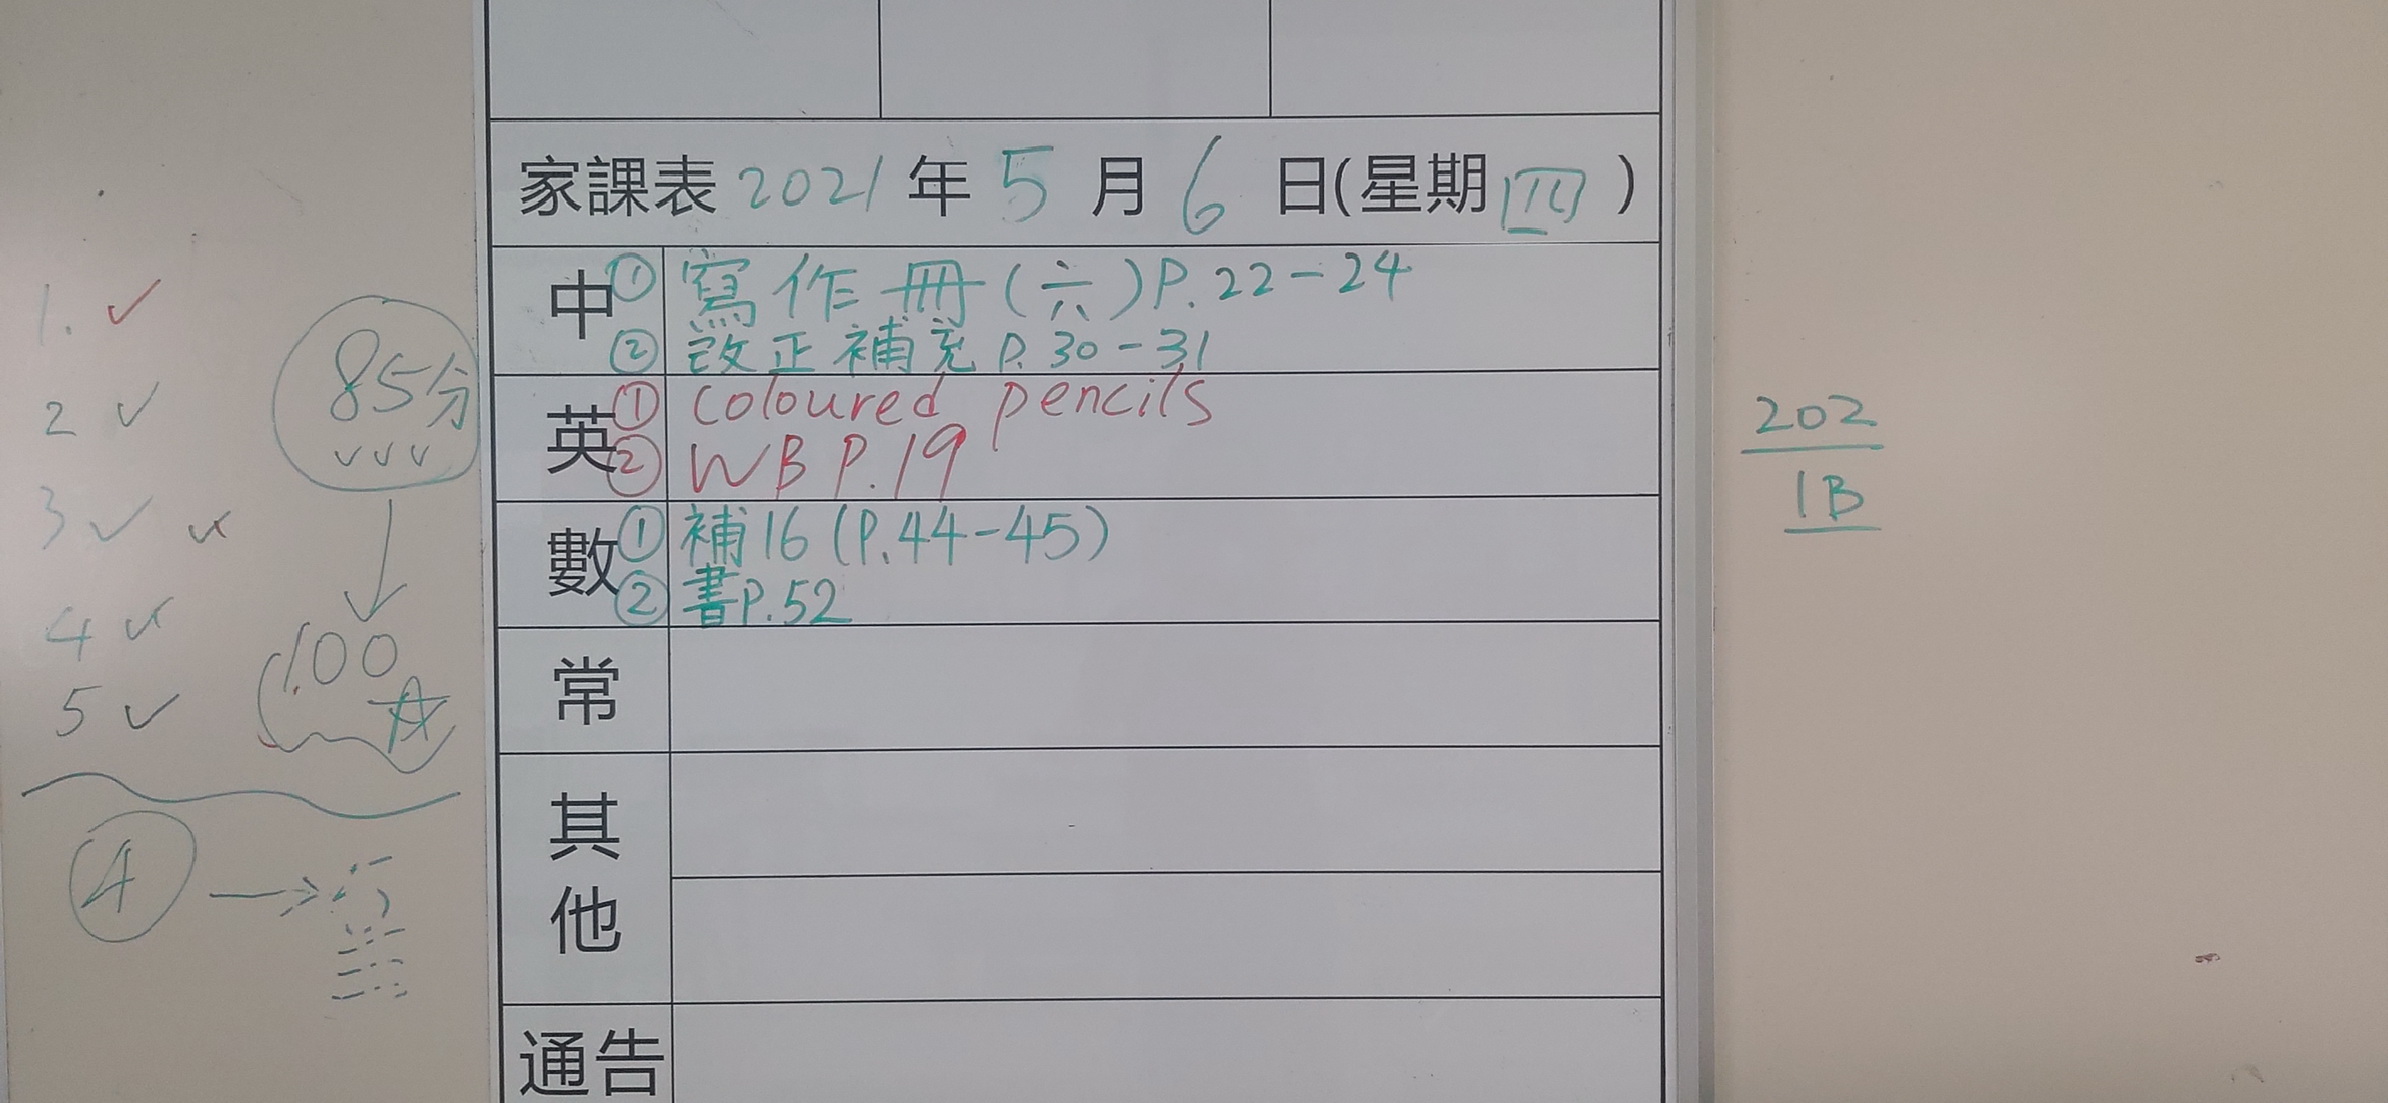 家課表 2021 年 5 月 6 日(星期四)
中 ① 寫作冊(六)P.22-24
② 改正補充 P.30-31
英 ① coloured pencils
② WB P.19
數 ① 補16 (P.44-45)
② 書P.52
常
其他
通告
1. ✓
2 ✓
3 ✓ ✓
4 ✓
5 ✓
85分
✓✓✓
100
4
202
1B